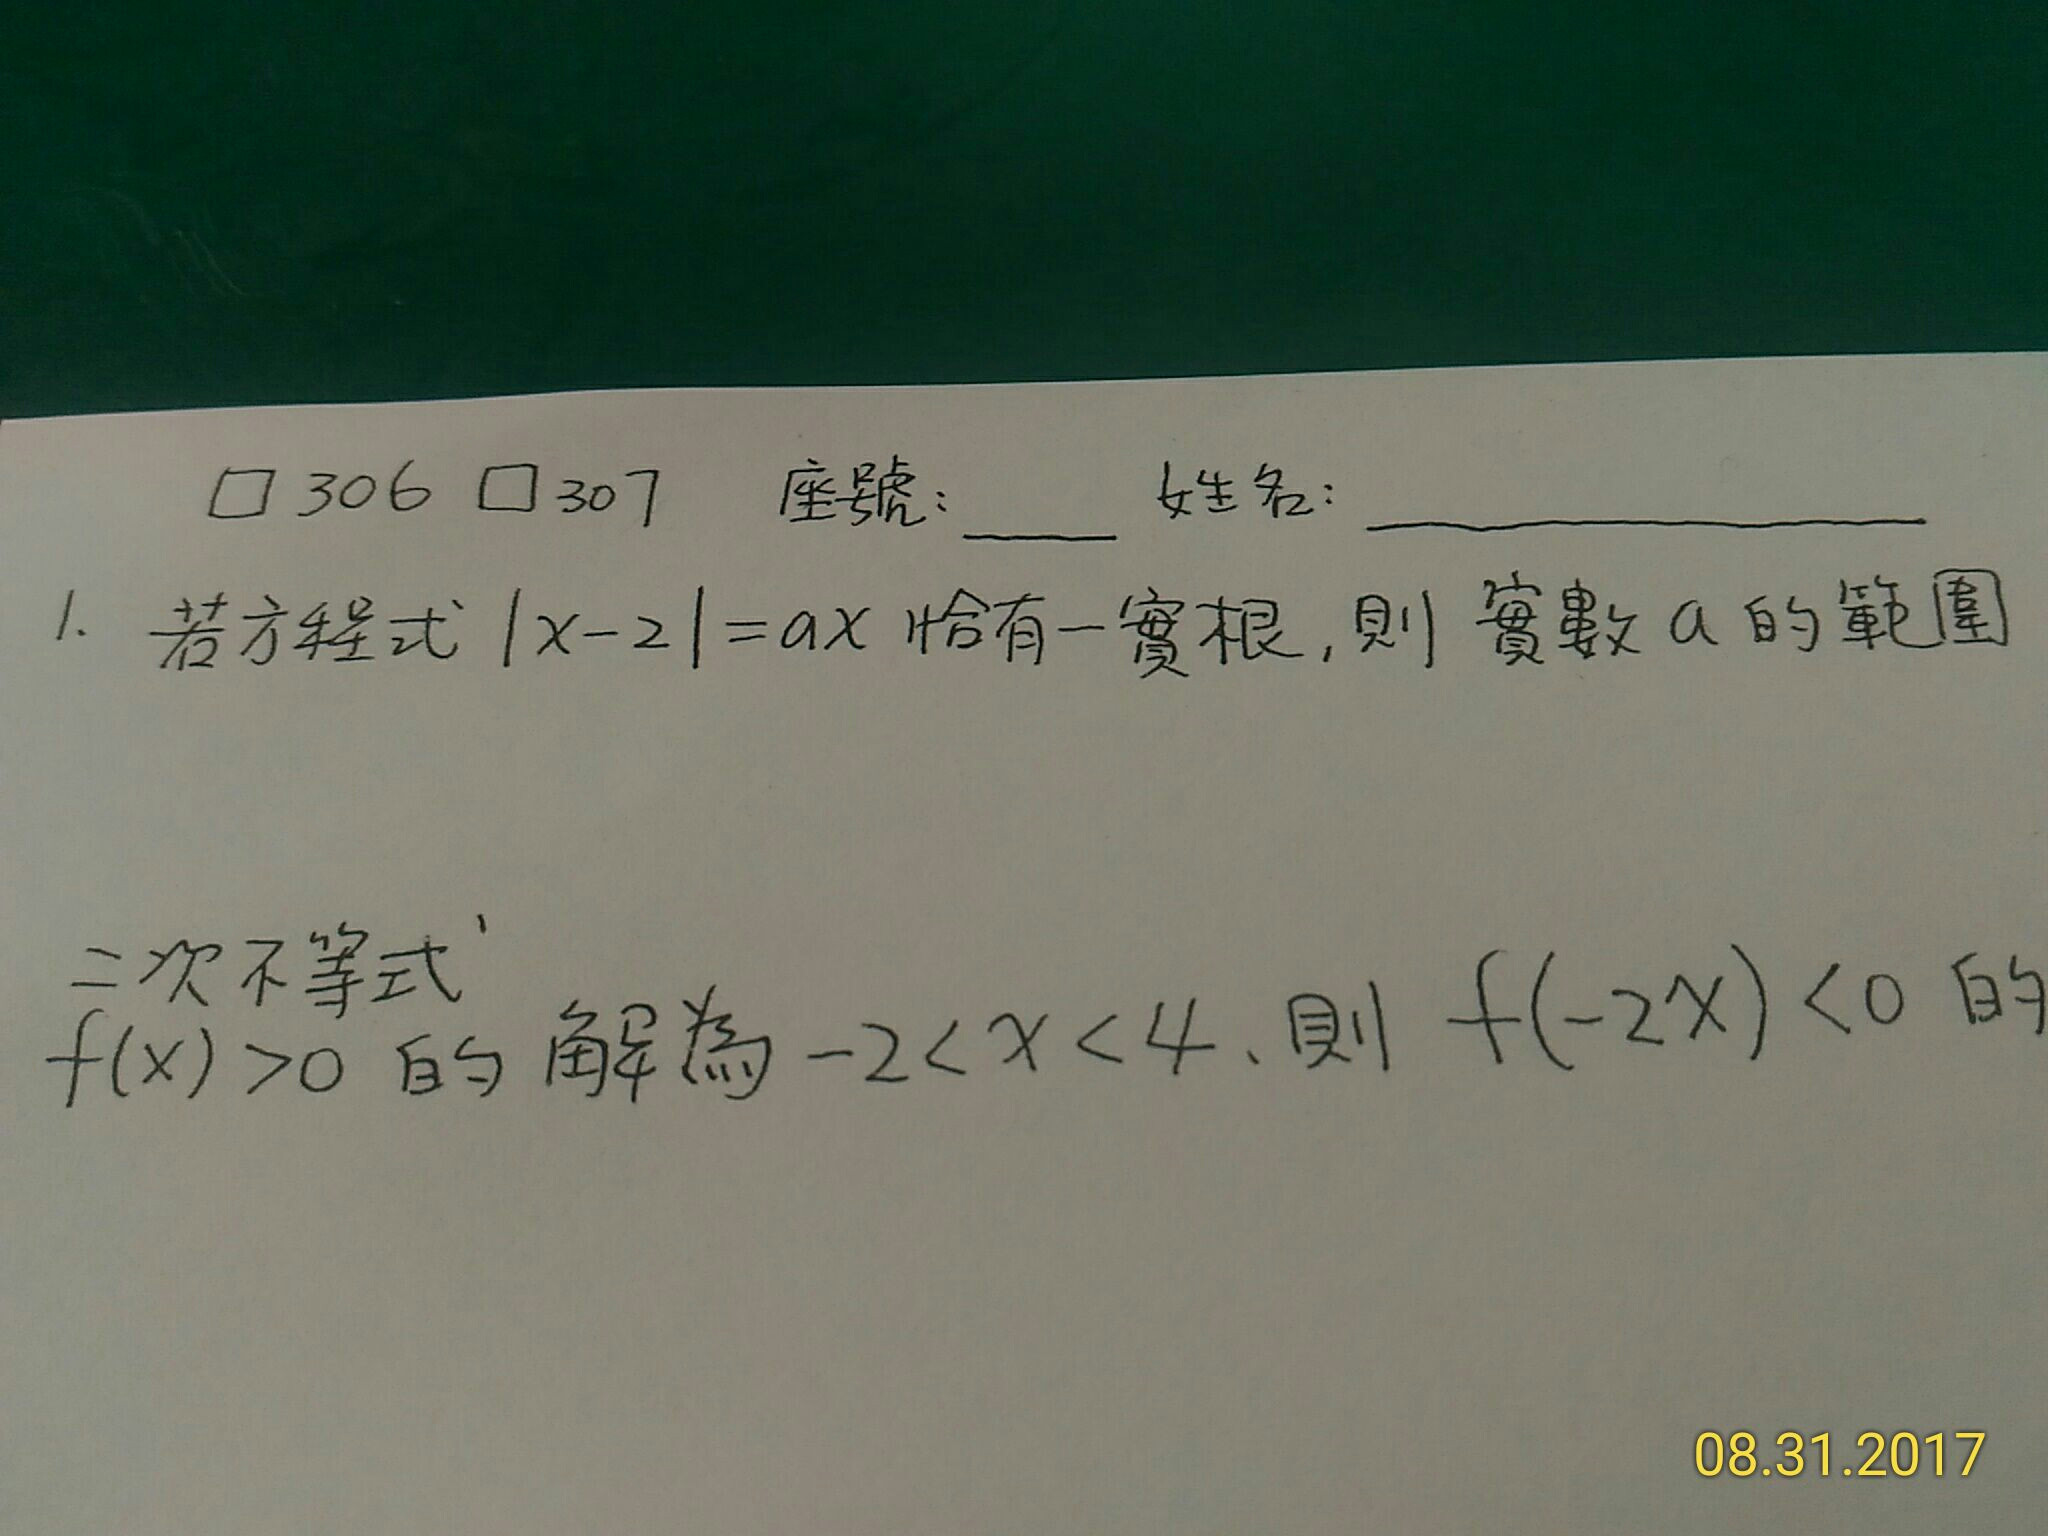 □ 306 □ 307 座號: ___ 姓名: ___________
1. 若方程式 |x-2|=ax 恰有一實根,則 實數 a 的範圍
二次不等式
f(x)>0 的解為 -2<x<4、則 f(-2x)<0 的
08.31.2017